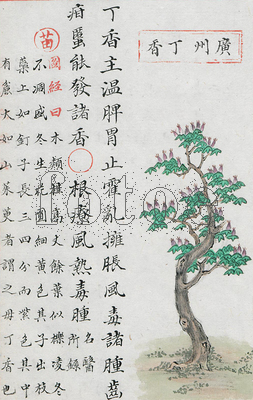 廣州丁香
丁香主溫脾胃止霍亂擁脹風毒諸腫齒
疳䘌能發諸香○根療風熱毒腫名醫所錄
苗圖經曰木類桂高丈餘葉似櫟凌冬
不凋盛冬生花圓細黃色其子出枝
蘂上如釘子長三四分而紫色其中
有麄大如山茱萸者謂之母丁香也